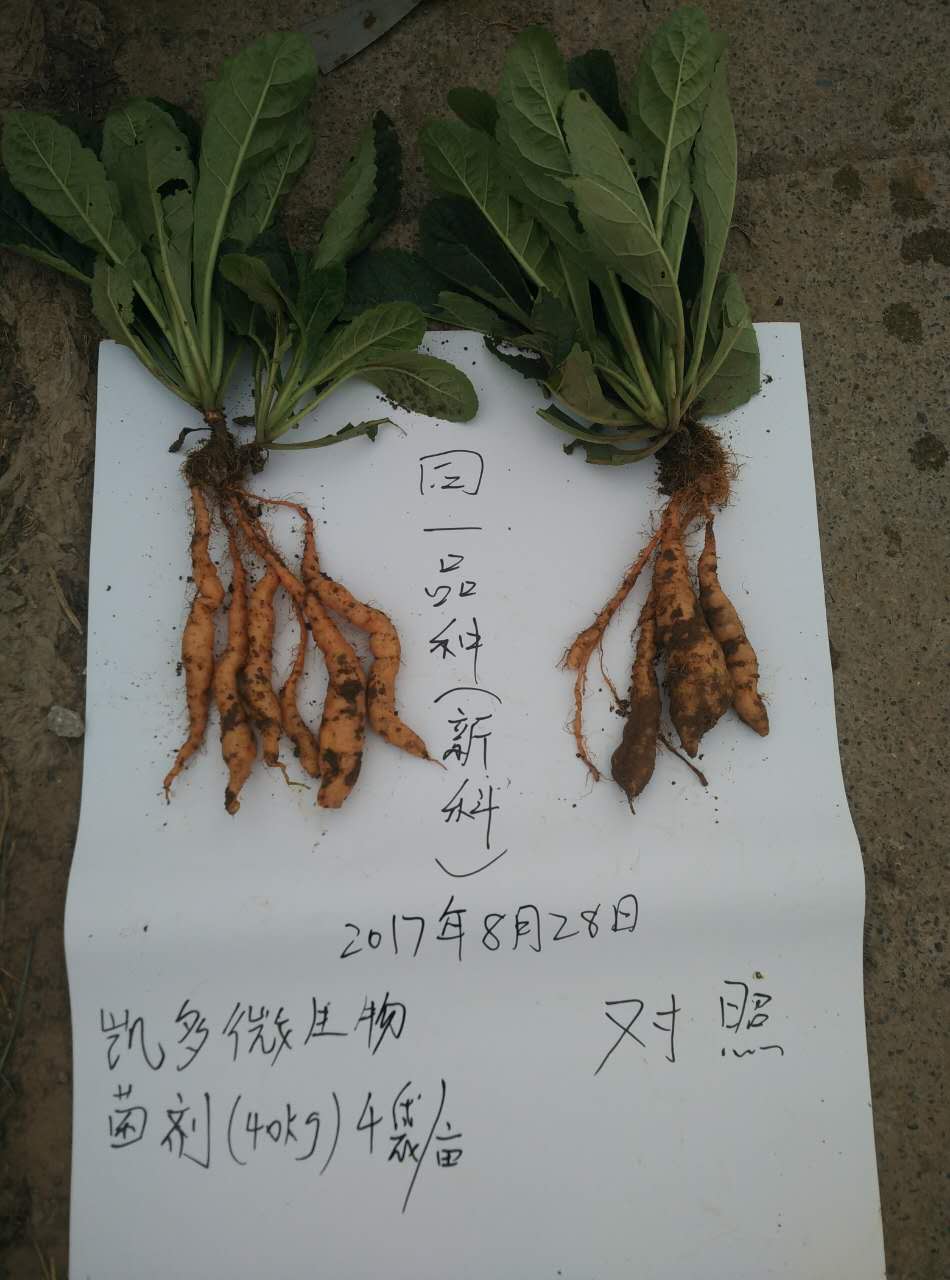 同一品种(新科)
2017年8月28日
凯多微生物
菌剂(40kg)4袋/亩
对照